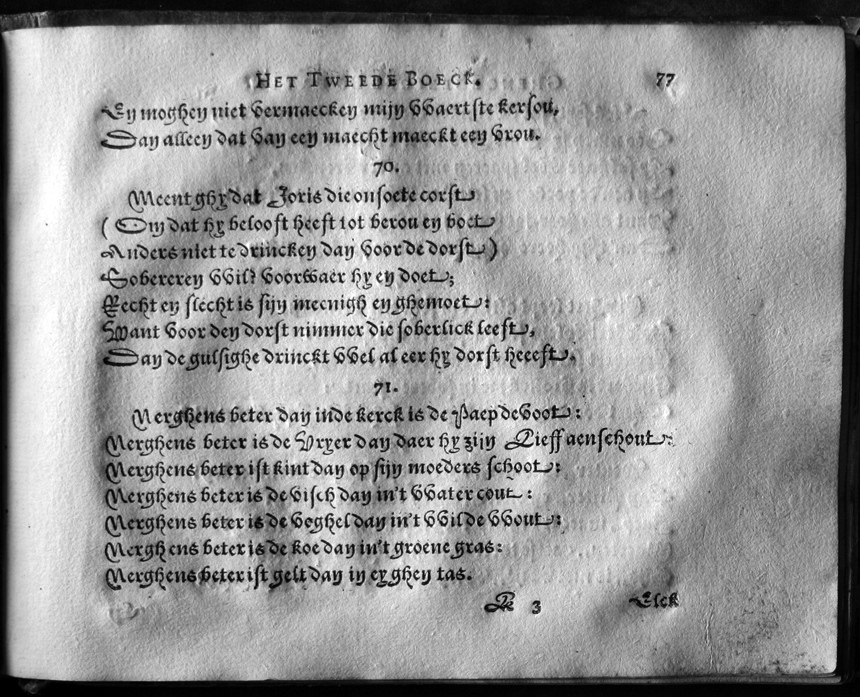 HET TWEEDE BOECK. 77
En moghen niet vermaecken mijn VVaertste kersou,
Dan alleen dat van een maecht maeckt een vrou.
70.
Meent ghy dat Joris die onsoete corst
( Om dat hy belooft heeft tot berou en boet
Anders niet te drincken dan voor de dorst )
Sobereren VVil? voorwaer hy en doet;
Recht en slecht is sijn meenigh en ghemoet:
Want voor den dorst nimmer die soberlick leeft,
Dan de gulsighe drinckt VVel al eer hy dorst heeeft.
71.
Nerghens beter dan inde kerck is de Paep devoot:
Nerghens beter is de Vryer dan daer hy zijn Lieff aenschout:
Nerghens beter ist kint dan op sijn moeders schoot:
Nerghens beter is de visch dan in't VVater cout:
Nerghens beter is de voghel dan in't VVilde VVout:
Nerghens beter is de koe dan in't groene gras:
Nerghens beter ist gelt dan in eyghen tas.
K 3 Elck